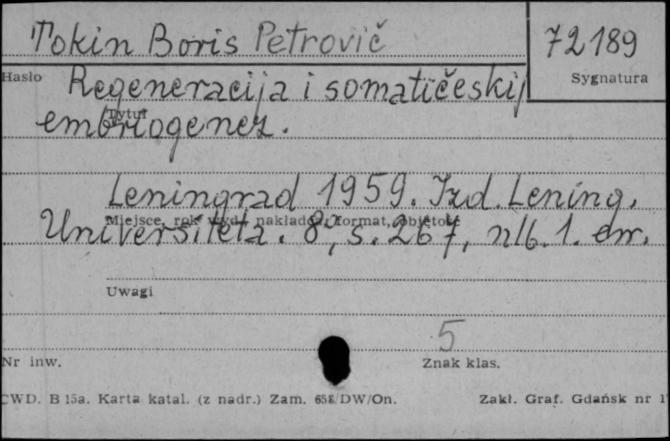 Tokin Boris Petrovič
72189
Hasło
Sygnatura
Regeneracija i somatičeskij
Tytuł
embriogenez.
Leningrad 1959. Izd. Lening.
Miejsce, rok wyd., nakładca, format, objętość
Universiteta. 8°, s. 267, nlb. 1. err.
Uwagi
5
Nr inw.
Znak klas.
CWD. B 15a. Karta katal. (z nadr.) Zam. 658/DW/On.
Zakł. Graf. Gdańsk nr 1